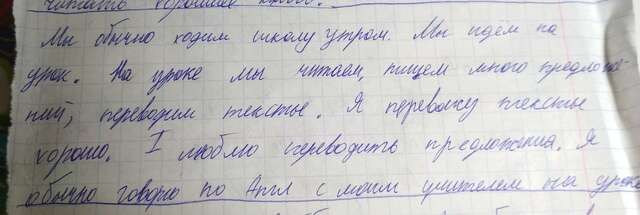 читать хорошая книга.
Мы обычно ходим школу утром. Мы идём на
урок. На уроке мы читаем, пишем много предложе-
ний, переводим тексты. Я перевожу тексты
хорошо. I люблю переводить предложения. Я
обычно говорю по Англ с моим учителем на уроке